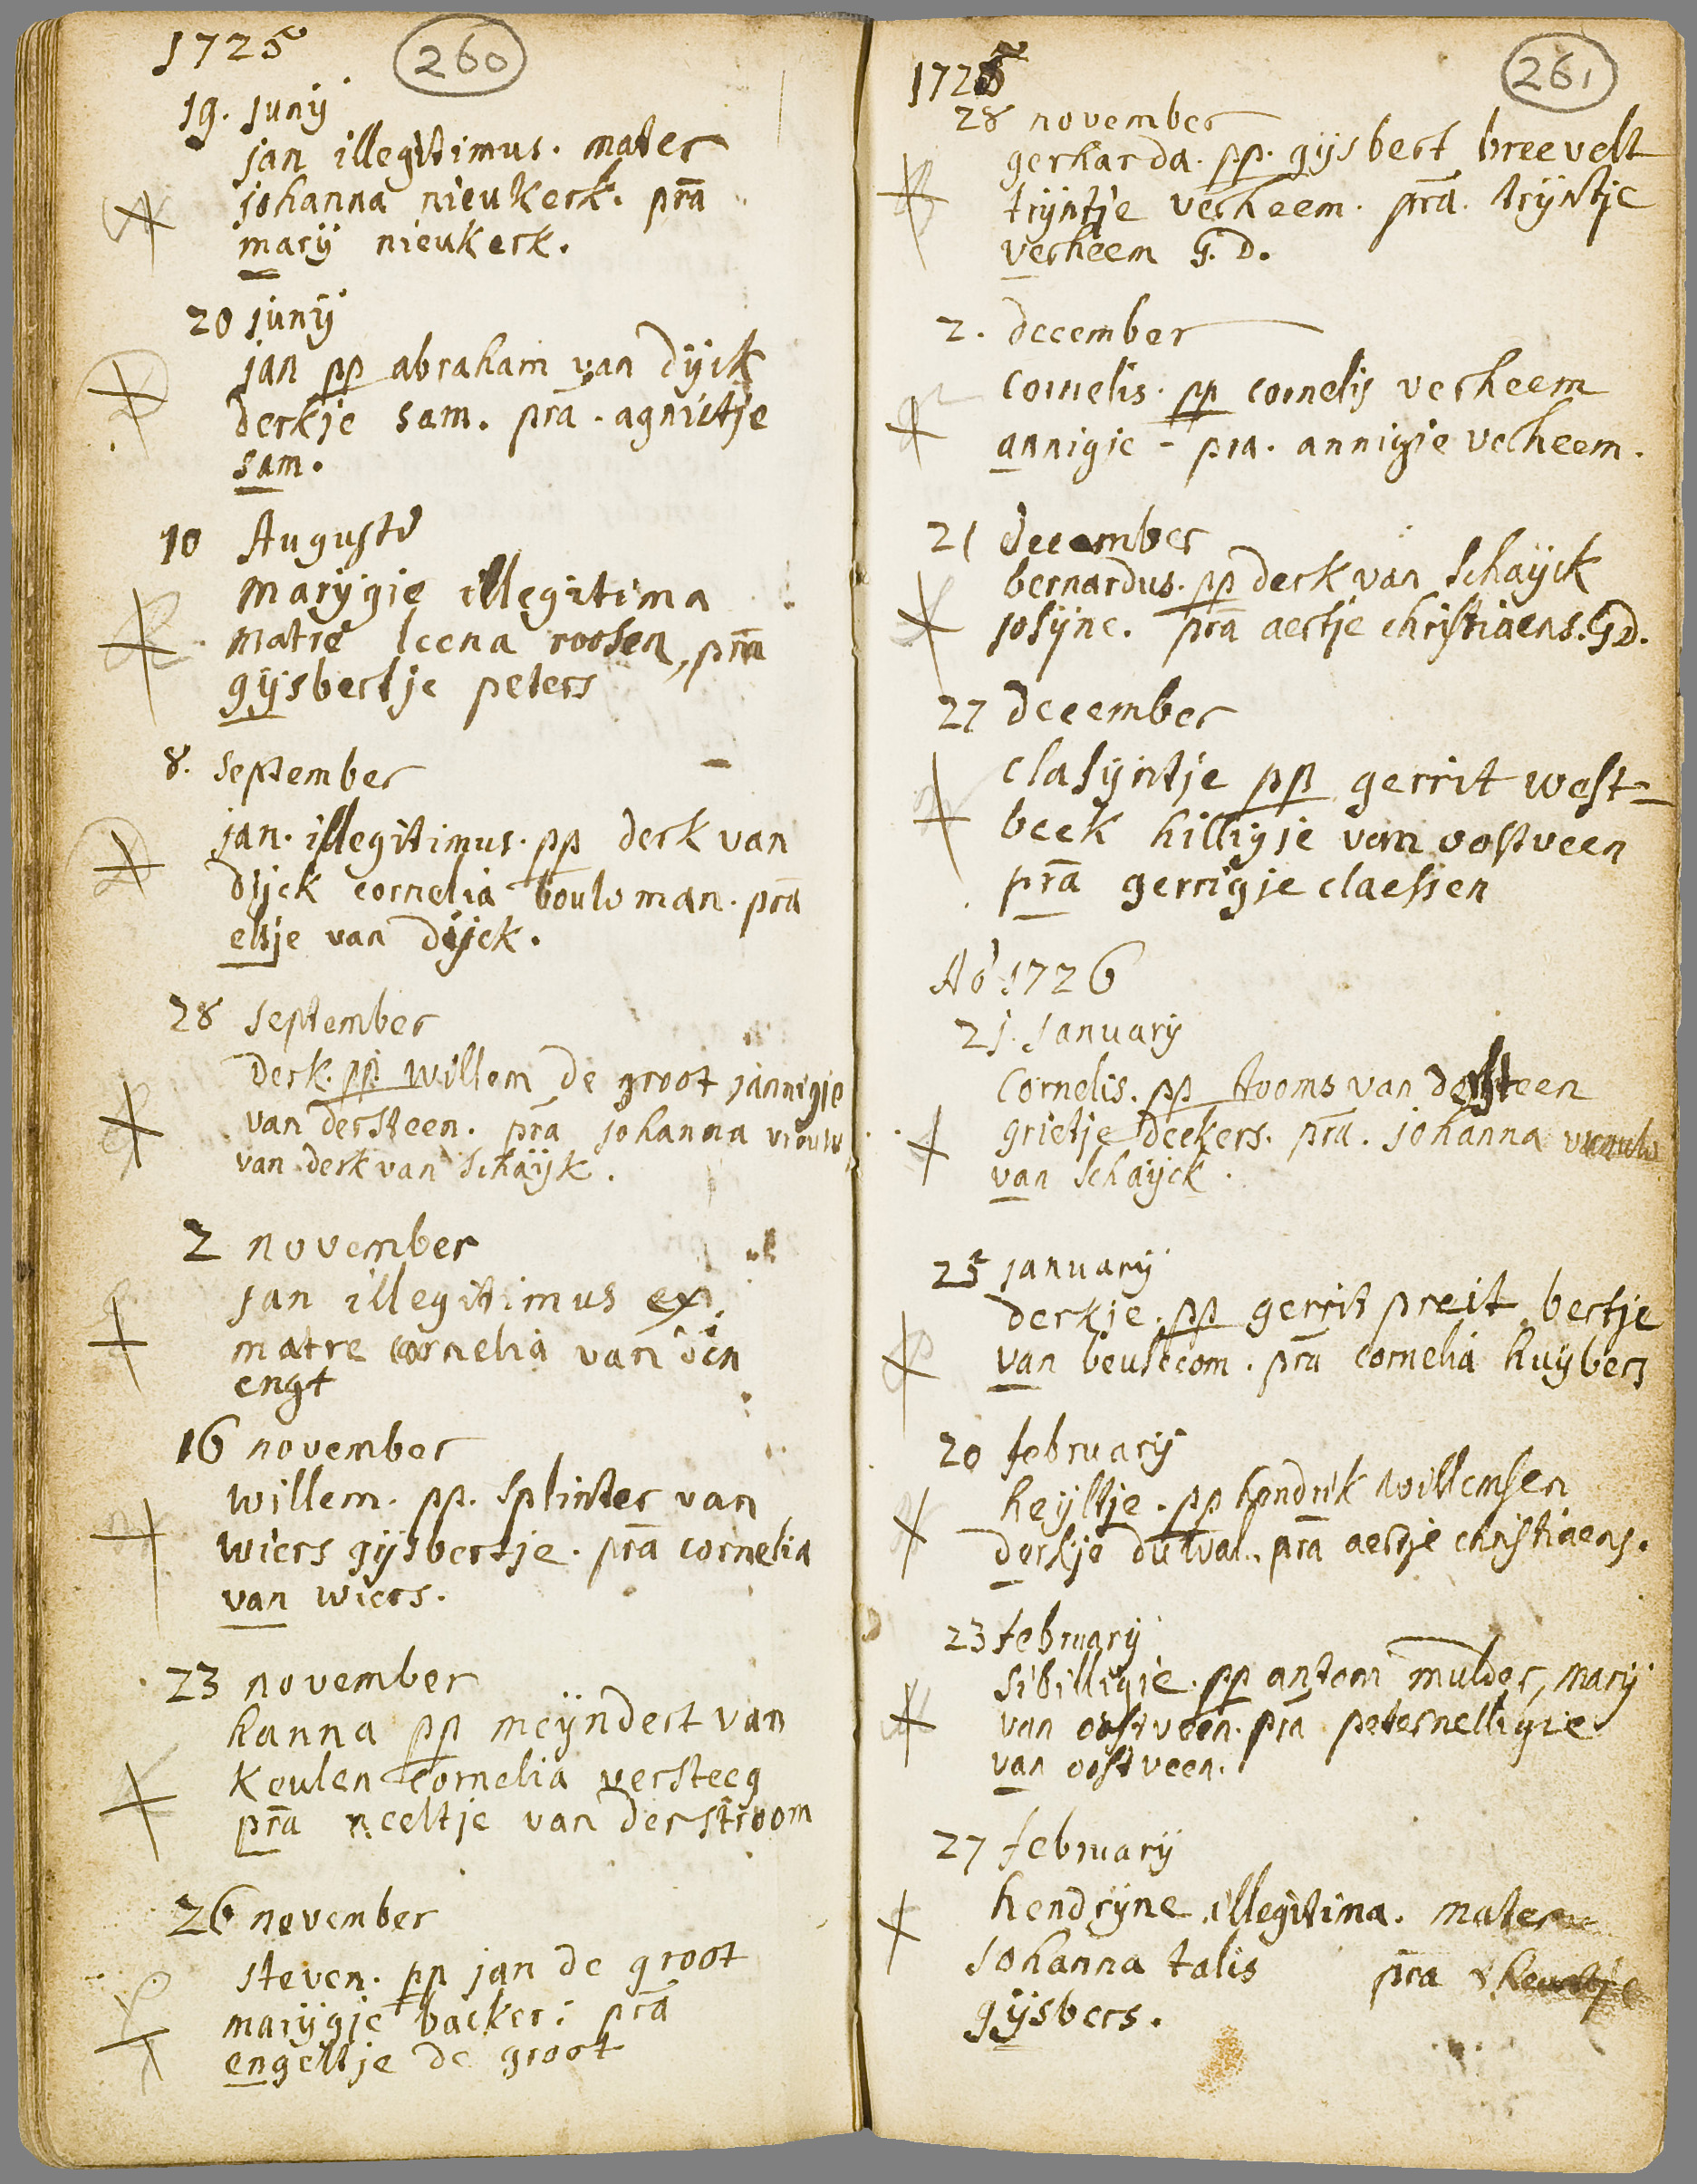 1725
260
19. juny
jan illegitimus. mater
johanna nieukerk. pra
mary nieukerk.
20 juny
jan pp abraham van dyck
derkje sam. pra. agnietje
sam.
10 Augusti
marygie illegitima
matre leena roosen, pra
gysbertje peters
8. september
jan. illegitimus. pp derk van
dyck cornelia bouwman. pra
elsje van dyck.
28 september
derk. pp. willem de groot jannigie
van der steen. pra johanna vrouw
van derk van schayk.
2 november
jan illegitimus ex
matre cornelia van den
engt
16 november
willem. pp. splinter van
wiers gysbertje. pra cornelia
van wiers.
23 november
hanna pp meyndert van
keulen cornelia versteeg
pra neeltje van der stroom
26 november
steven. pp jan de groot
marygje backer: pra
engeltje de groot
1725
261
28 november
gerharda. pp. gysbert breevelt
tryntje verheem. pra. tryntje
verheem G. D.
2. december
cornelis. pp cornelis verheem
annigie - pra. annigie verheem.
21 december
bernardus. pp derk van schayck
josyne. pra aertje christiaens. G D.
27 december
clasyntje pp gerrit west=
beek hilligje van oostveen
pra gerrigje claessen
Ao 1726
21. january
Cornelis. pp tooms van der steen
grietje deekers. pra. johanna vrouw
van schayck.
25 january
derkje. pp gerrit preit bertje
van beusecom. pra cornelia huybers
20 february
heyltje. pp hendrik willemsen
derkje dutval. pra aertje christiaens.
23 february
sibilligie. pp antoni mulder, mary
van oostveen. pra peternelligie
van oostveen.
27 february
hendryne illegitima. mater
Johanna talis pra
gysbers.